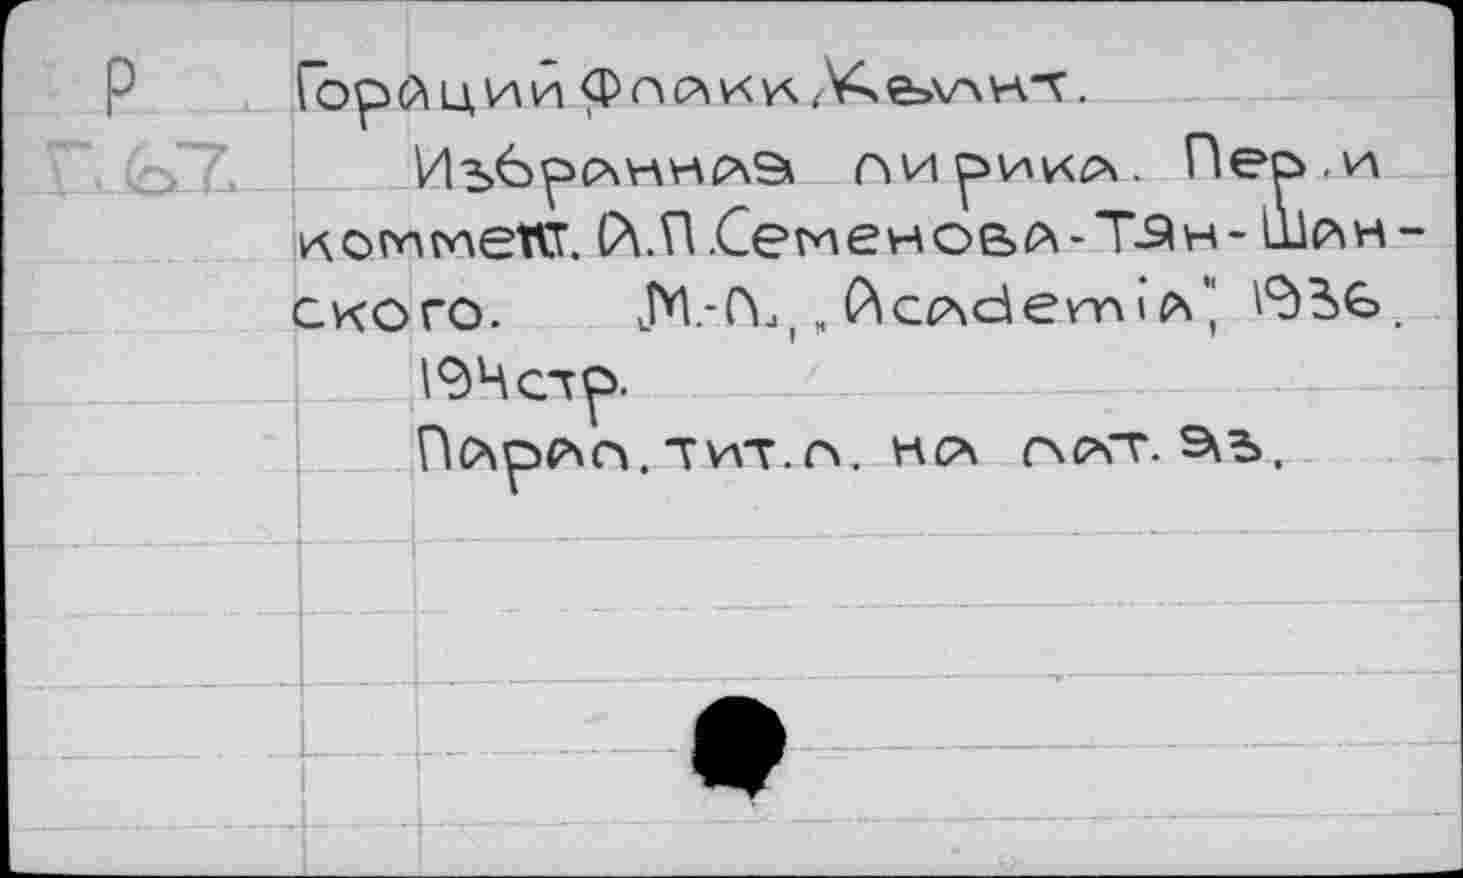 Р Горации Флакк, Квинт.
Г.67. Избранная лирика. Пер. и
коммент. А.П. Семенова-Тян-Шан-
ского. М.-Л., „Academia", 1936.
194 стр.
Парал. тит. л. на лат. яз.